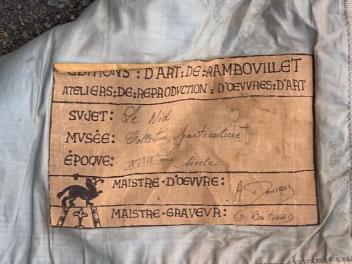 EDITIONS : D'ART : DE : RAMBOVILLET
ATELIERS : DE : REPRODVCTION : D'OEVVRES : D'ART
SVJET : Le Nid
MVSÉE : Collection particulière
ÉPOQVE : XVIII ème siècle
MAISTRE · D'OEVVRE :
MAISTRE · GRAVEVR :